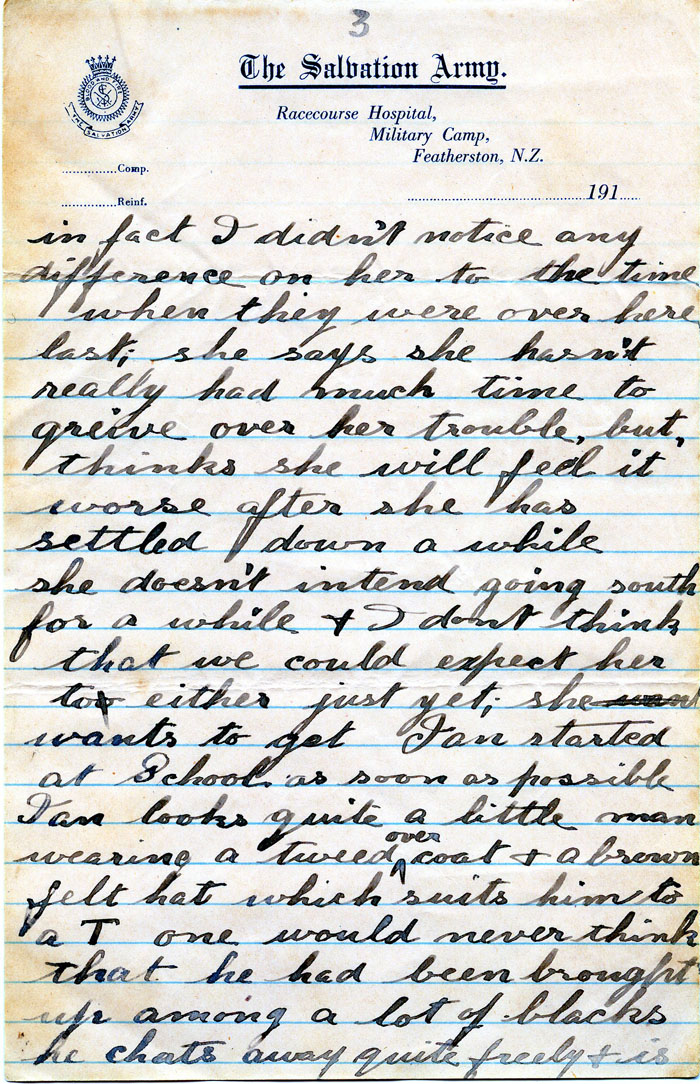 3
The Salvation Army.
BLOOD AND FIRE
THE SALVATION ARMY
Racecourse Hospital,
Military Camp,
Featherston, N.Z.
...............Comp.
...............Reinf.
191
in fact I didn't notice any
difference on her to the time
when they were over here
last; she says she hasn't
really had much time to
greive over her trouble, but,
thinks she will feel it
worse after she has
settled down a while
she doesn't intend going south
for a while & I dont think
that we could expect her
to either just yet; she
wants to get Ian started
at School as soon as possible
Ian looks quite a little man
wearing a tweed over coat & a brown
felt hat which suits him to
a T one would never think
that he had been brought
up among a lot of blacks
he chats away quite freely & is